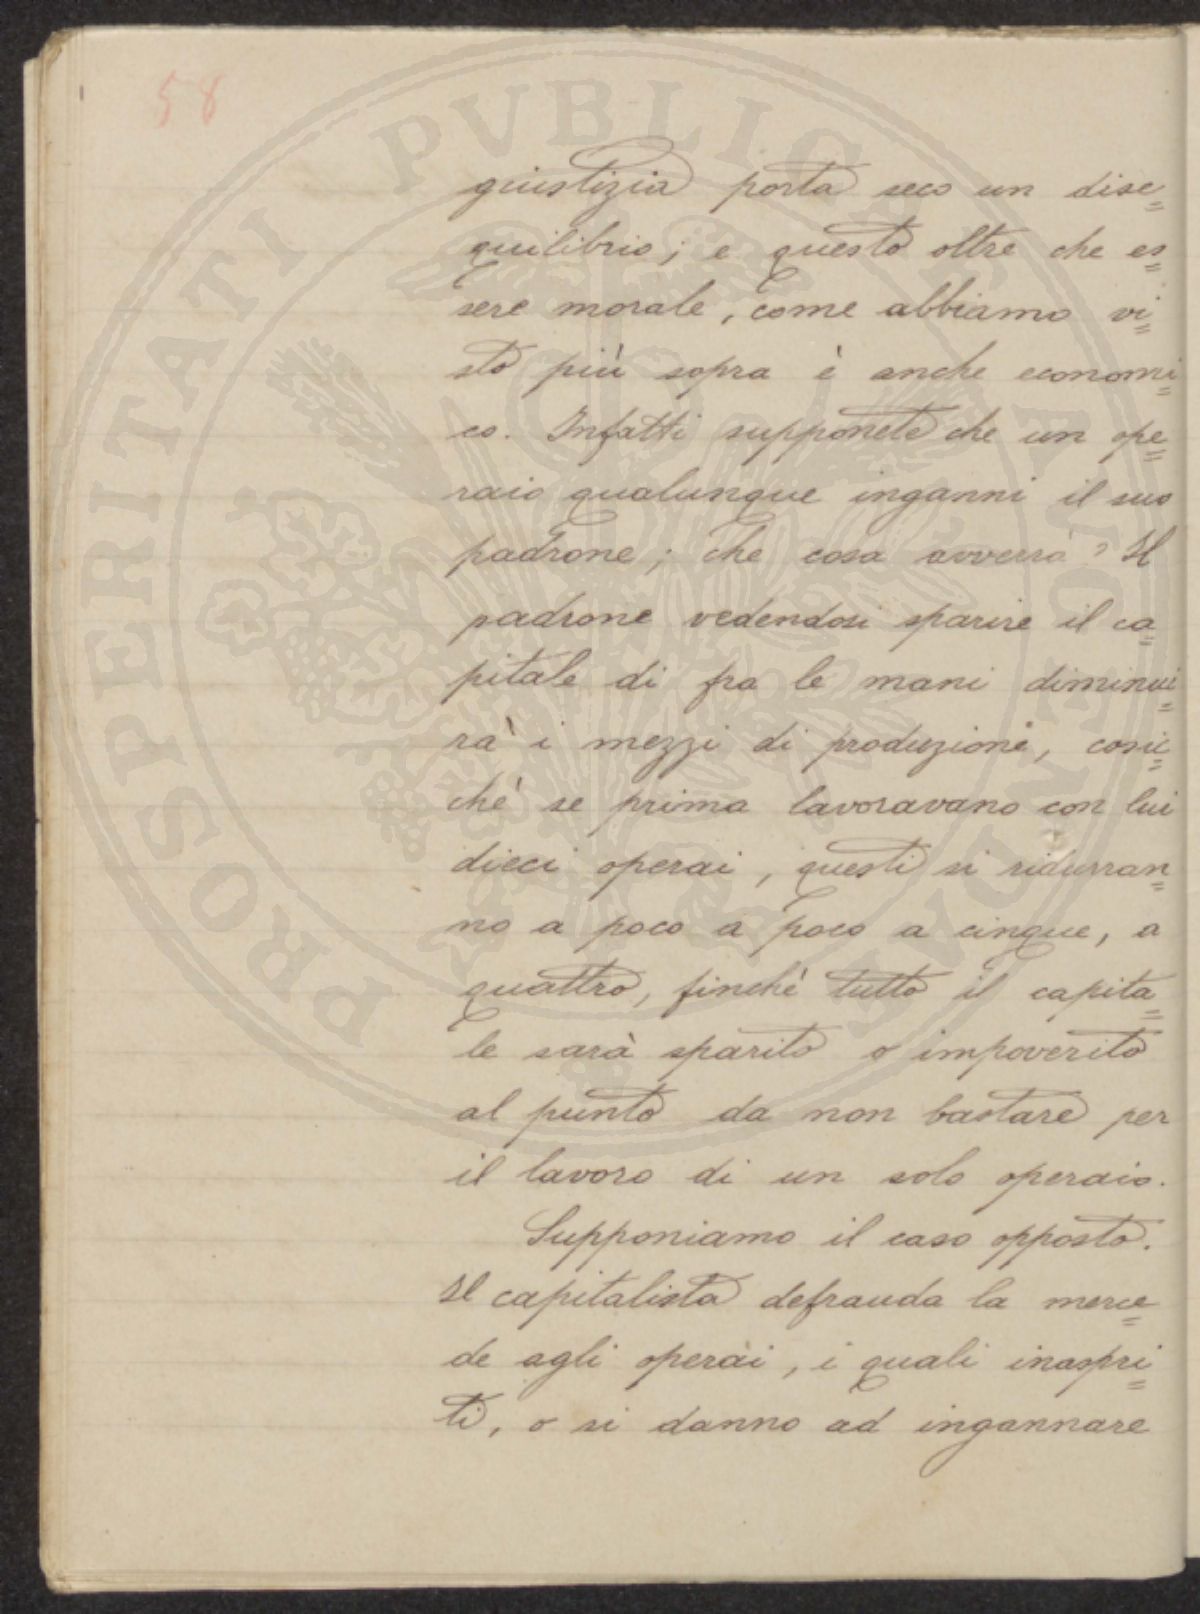 58
giustizia porta seco un dise=
quilibrio; e questo oltre che es=
sere morale, come abbiamo vi=
sto più sopra è anche economi=
co. Infatti supponete che un ope=
raio qualunque inganni il suo
padrone; che cosa avverrà? Il
padrone vedendosi sparire il ca=
pitale di fra le mani diminui=
rà i mezzi di produzione, cosic=
chè se prima lavoravano con lui
dieci operai, questi si ridurran=
no a poco a poco a cinque, a
quattro, finchè tutto il capita=
le sarà sparito o impoverito
al punto da non bastare per
il lavoro di un solo operaio.
Supponiamo il caso opposto.
Il capitalista defrauda la merce=
de agli operai, i quali inaspri=
ti, o si danno ad ingannare
PROSPERITATI PVBLICAE AVGENDAE